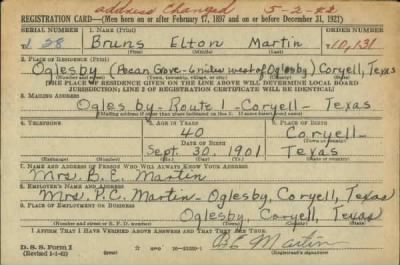 address changed 5-2-42
REGISTRATION CARD—(Men born on or after February 17, 1897 and on or before December 31, 1921)
SERIAL NUMBER 1. NAME (Print) ORDER NUMBER
128 Bruns Elton Martin 10,131
(First) (Middle) (Last)
2. PLACE OF RESIDENCE (Print)
Oglesby (Pecan Grove-6 miles west of Oglesby) Coryell, Texas
(Number and street) (Town, township, village, or city) (County) (State)
[THE PLACE OF RESIDENCE GIVEN ON THE LINE ABOVE WILL DETERMINE LOCAL BOARD
JURISDICTION; LINE 2 OF REGISTRATION CERTIFICATE WILL BE IDENTICAL]
3. MAILING ADDRESS
Oglesby-Route 1-Coryell-Texas
[Mailing address if other than place indicated on line 2. If same insert word same]
4. TELEPHONE 5. AGE IN YEARS 6. PLACE OF BIRTH
40 Coryell-
DATE OF BIRTH (Town or county)
Sept. 30, 1901 Texas
(Exchange) (Number) (Mo.) (Day) (Yr.) (State or country)
7. NAME AND ADDRESS OF PERSON WHO WILL ALWAYS KNOW YOUR ADDRESS
Mrs. B. E. Martin
8. EMPLOYER'S NAME AND ADDRESS
Mrs. P. C. Martin-Oglesby, Coryell, Texas
9. PLACE OF EMPLOYMENT OR BUSINESS
Oglesby, Coryell, Texas
(Number and street or R. F. D. number) (Town) (County) (State)
I AFFIRM THAT I HAVE VERIFIED ABOVE ANSWERS AND THAT THEY ARE TRUE.
D. S. S. Form 1
(Revised 1-1-42) GPO B E Martin
(Registrant's signature)